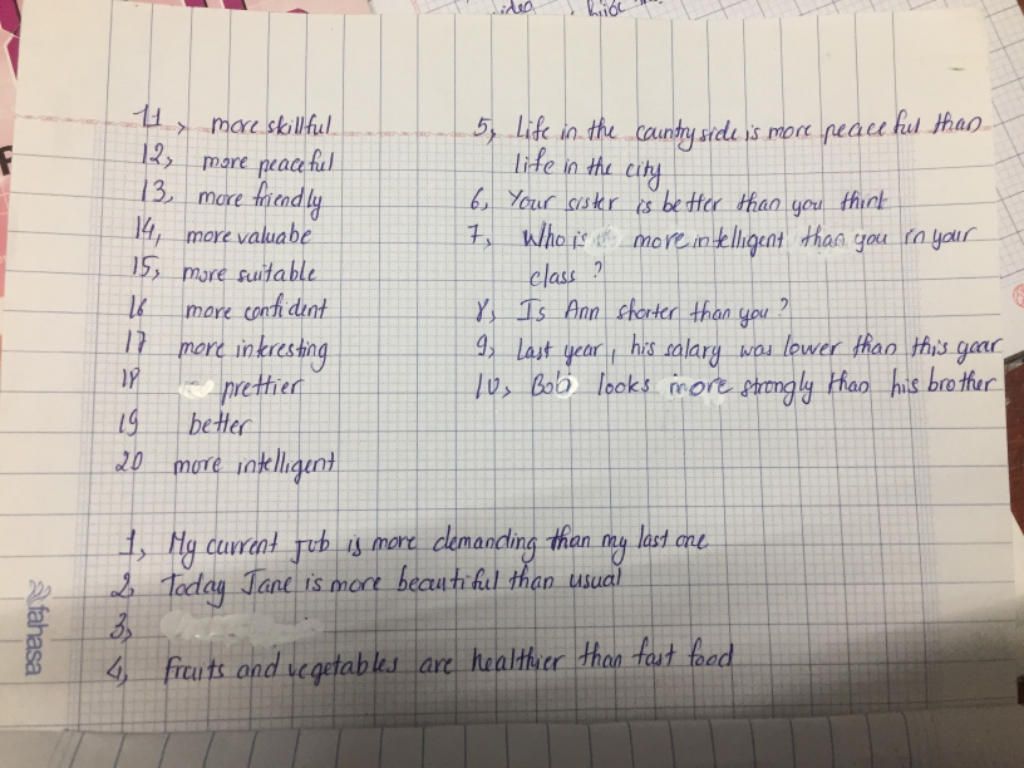 idea
11, more skillful
12, more peaceful
13, more friendly
14, more valuabe
15, more suitable
16 more confident
17 more interesting
18 prettier
19 better
20 more intelligent
1, My current job is more demanding than my last one
2, Today Jane is more beautiful than usual
3,
4, fruits and vegetables are healthier than fast food
5, life in the countryside is more peaceful than
life in the city
6, Your sister is better than you think
7, Who is more intelligent than you in your
class ?
8, Is Ann shorter than you ?
9, last year, his salary was lower than this year
10, Bob looks more strongly than his brother
fahasa